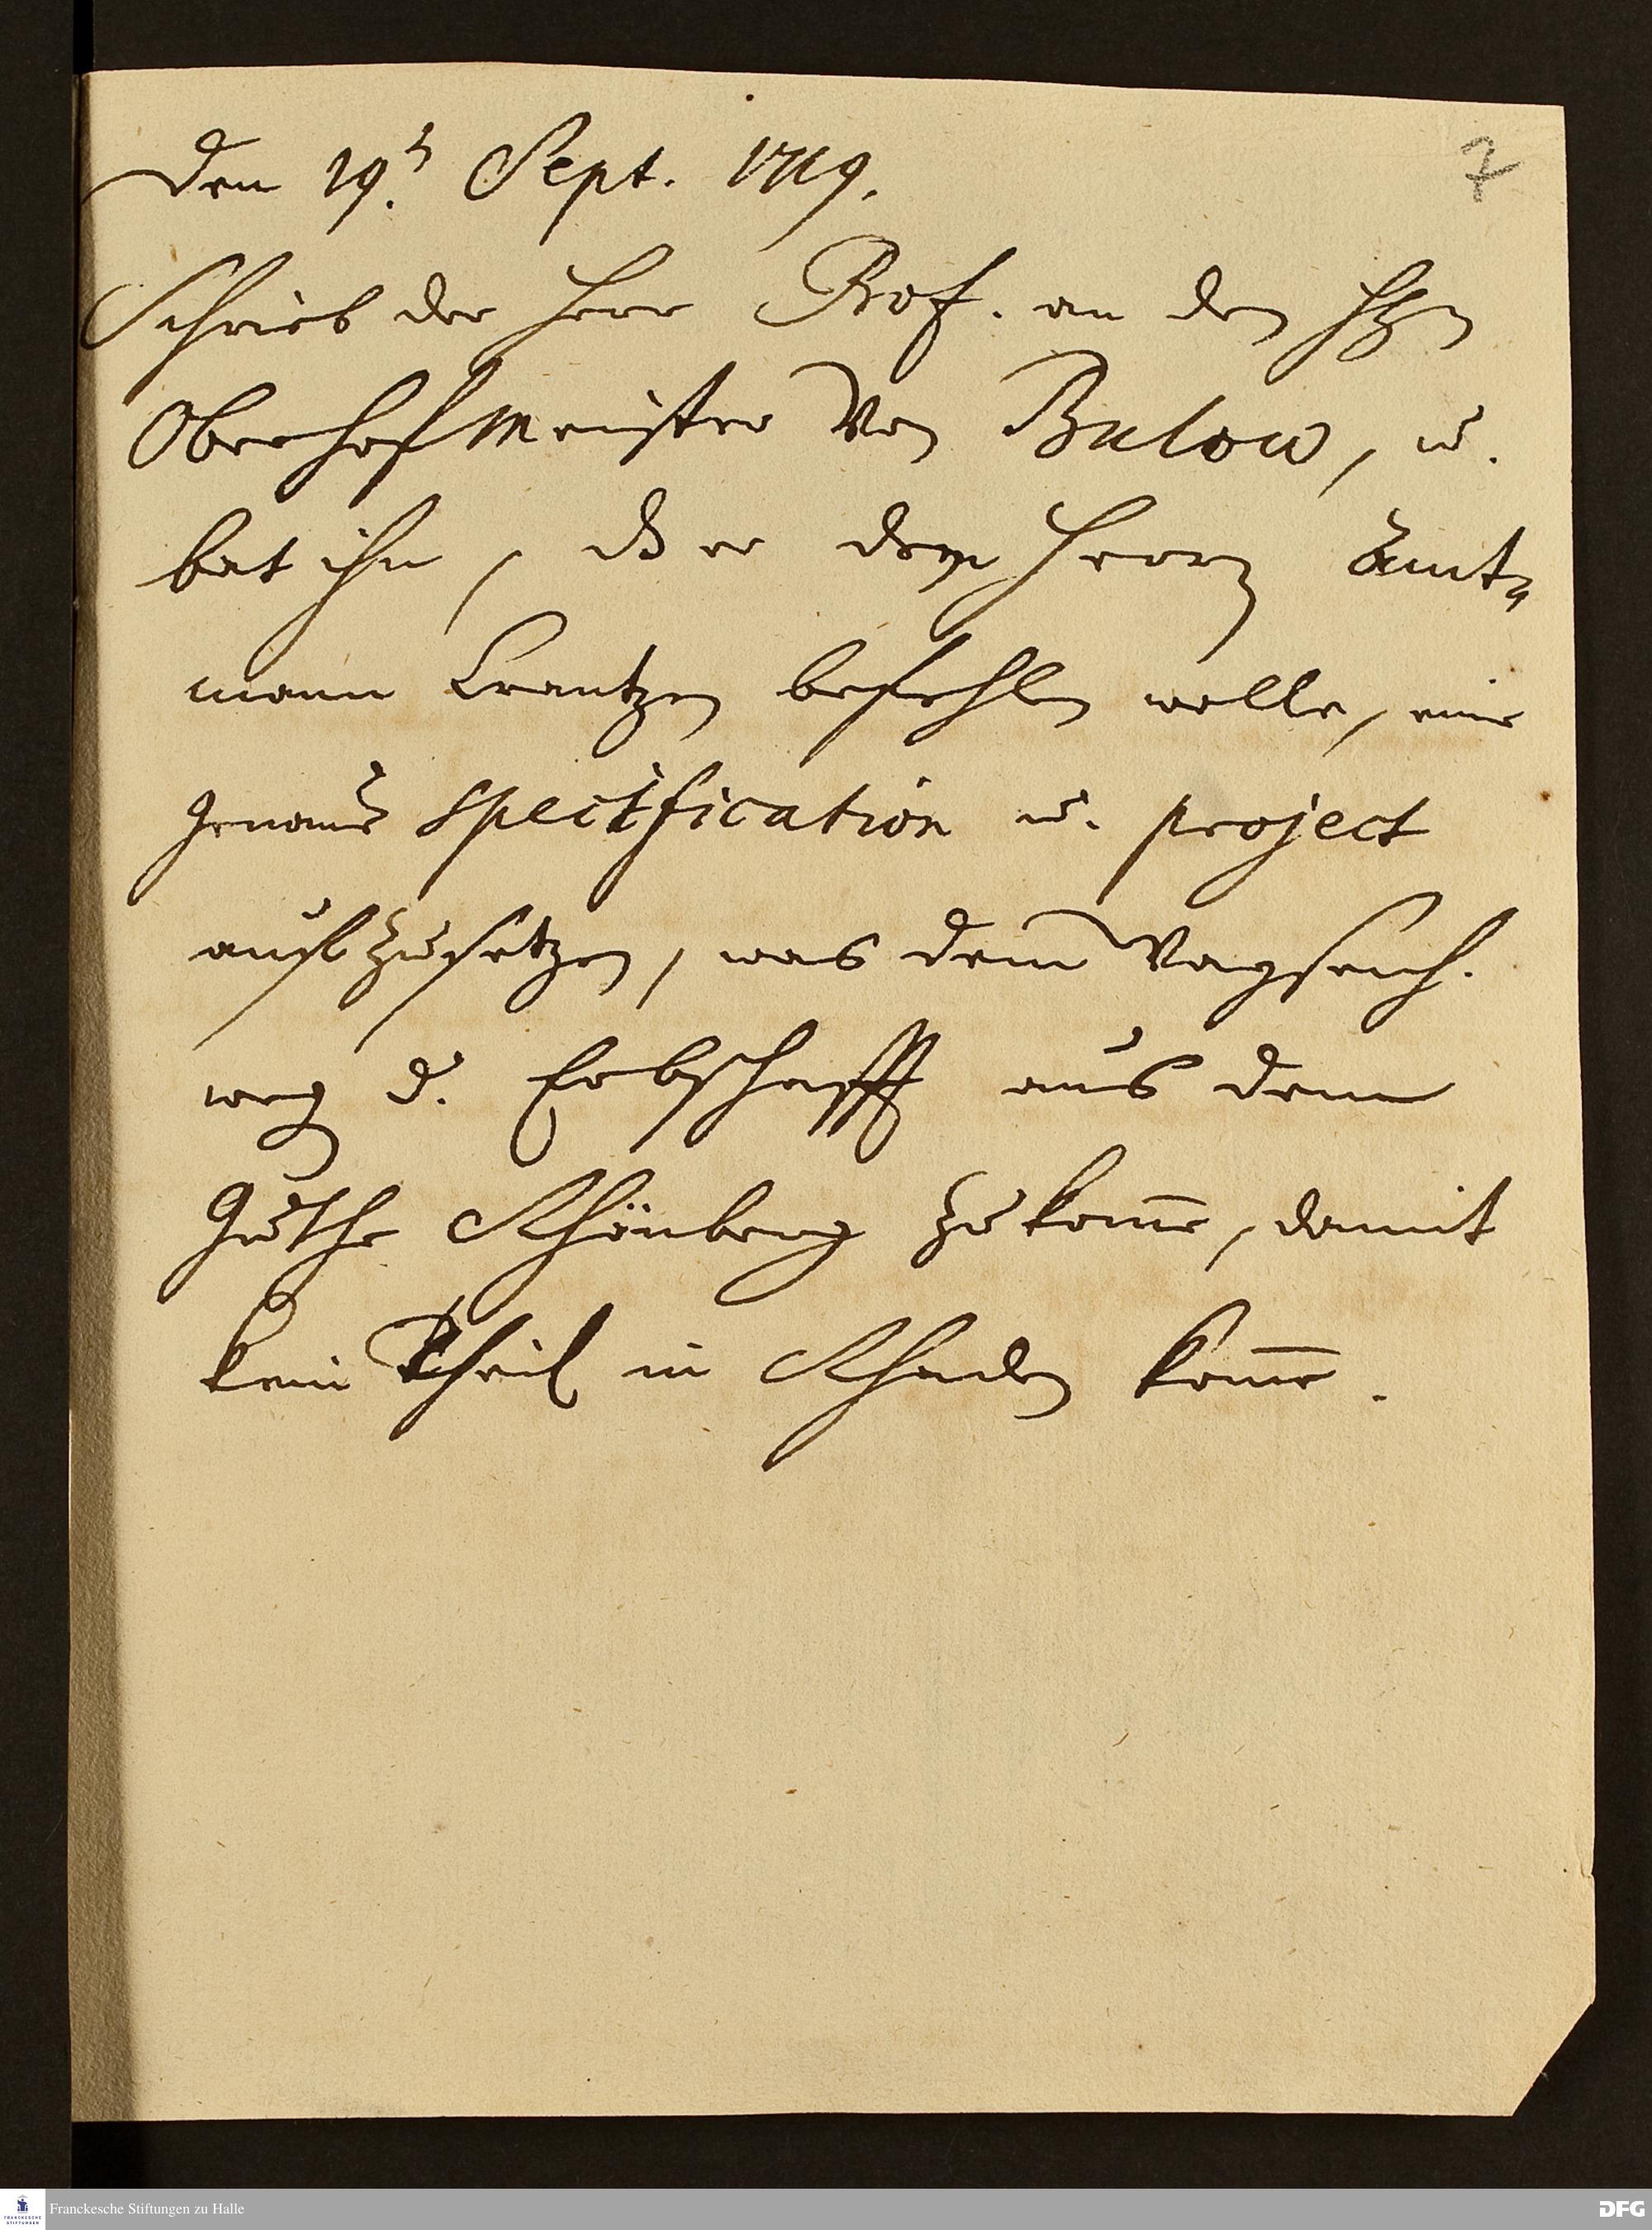 den 19.t Sept. 1719.
7
Schrieb der Herr Prof. an den Hrn
Oberhofmeister von Bulow, u.
bat ihn, dß er dem Herrn Amt-
mann Crantzen befehlen wolle, eine
genaue specification u. project
aufzusetzen, was dem Waysenh.
weg d. Erbschafft aus dem
Guthe Schönberg zukom̅e, damit
kein Theil in Schaden kom̅e.
Franckesche Stiftungen zu Halle
FRANCKESCHE
STIFTUNGEN
DFG